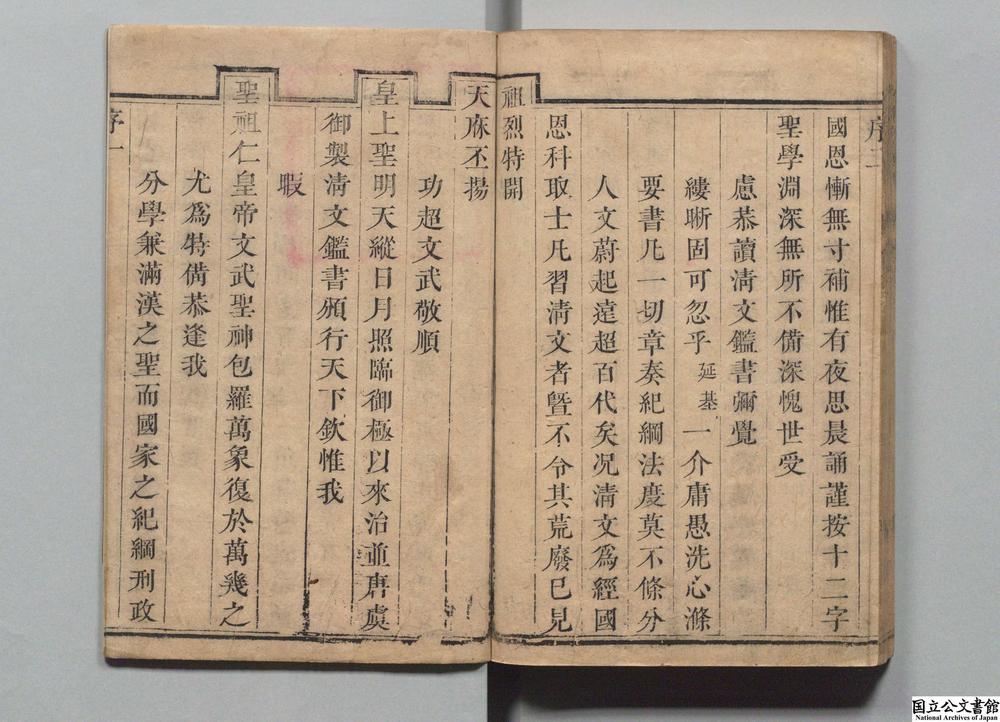 序一
分學兼滿漢之聖而國家之紀綱刑政
尤爲特備恭逢我
聖祖仁皇帝文武聖神包羅萬象復於萬幾之
暇
御製清文鑑書頒行天下欽惟我
皇上聖明天縱日月照臨御極以來治並唐虞
功超文武敬順
天庥丕揚
祖烈特開
恩科取士凡習清文者曁不令其荒廢已見
人文蔚起遠超百代矣况清文爲經國
要書凡一切章奏紀綱法度莫不條分
縷晰固可忽乎延基一介庸愚洗心滌
慮恭讀清文鑑書彌覺
聖學淵深無所不備深愧世受
國恩慚無寸補惟有夜思晨誦謹按十二字
序二
国立公文書館
National Archives of Japan